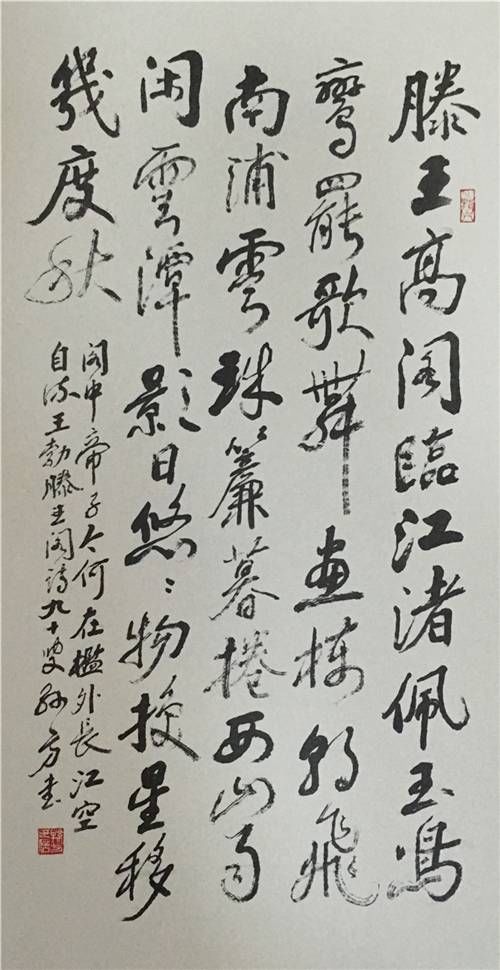 滕王高阁臨江渚佩玉鳴
鸞罷歌舞画棟朝飛
南浦雲珠簾暮捲西山雨
闲雲潭影日悠〻物换星移
幾度秋
阁中帝子今何在檻外長江空
自流王勃滕王阁诗九十叟孙方书